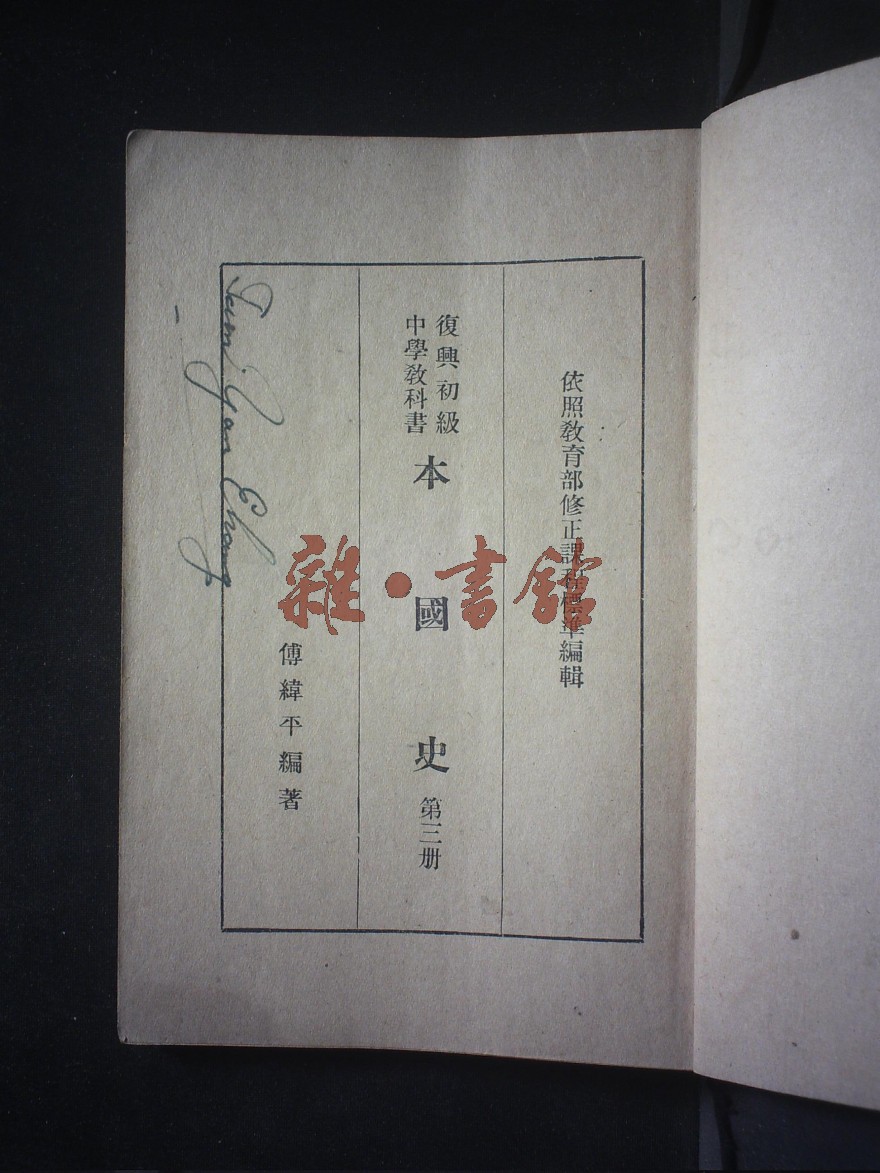 依照教育部修正課程標準編輯
復興初級
中學教科書
本國史 第三册
傅緯平編著
雜·書館